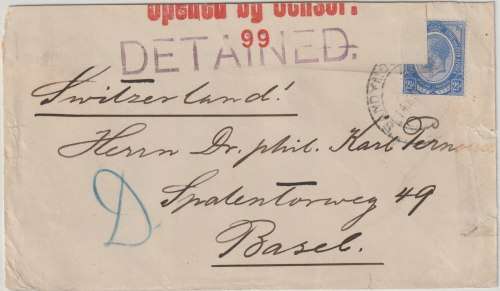 Opened by Censor.
99
DETAINED.
Switzerland!
Herrn Dr. phil. Karl
Spalentorweg 49
Basel.
D
2½